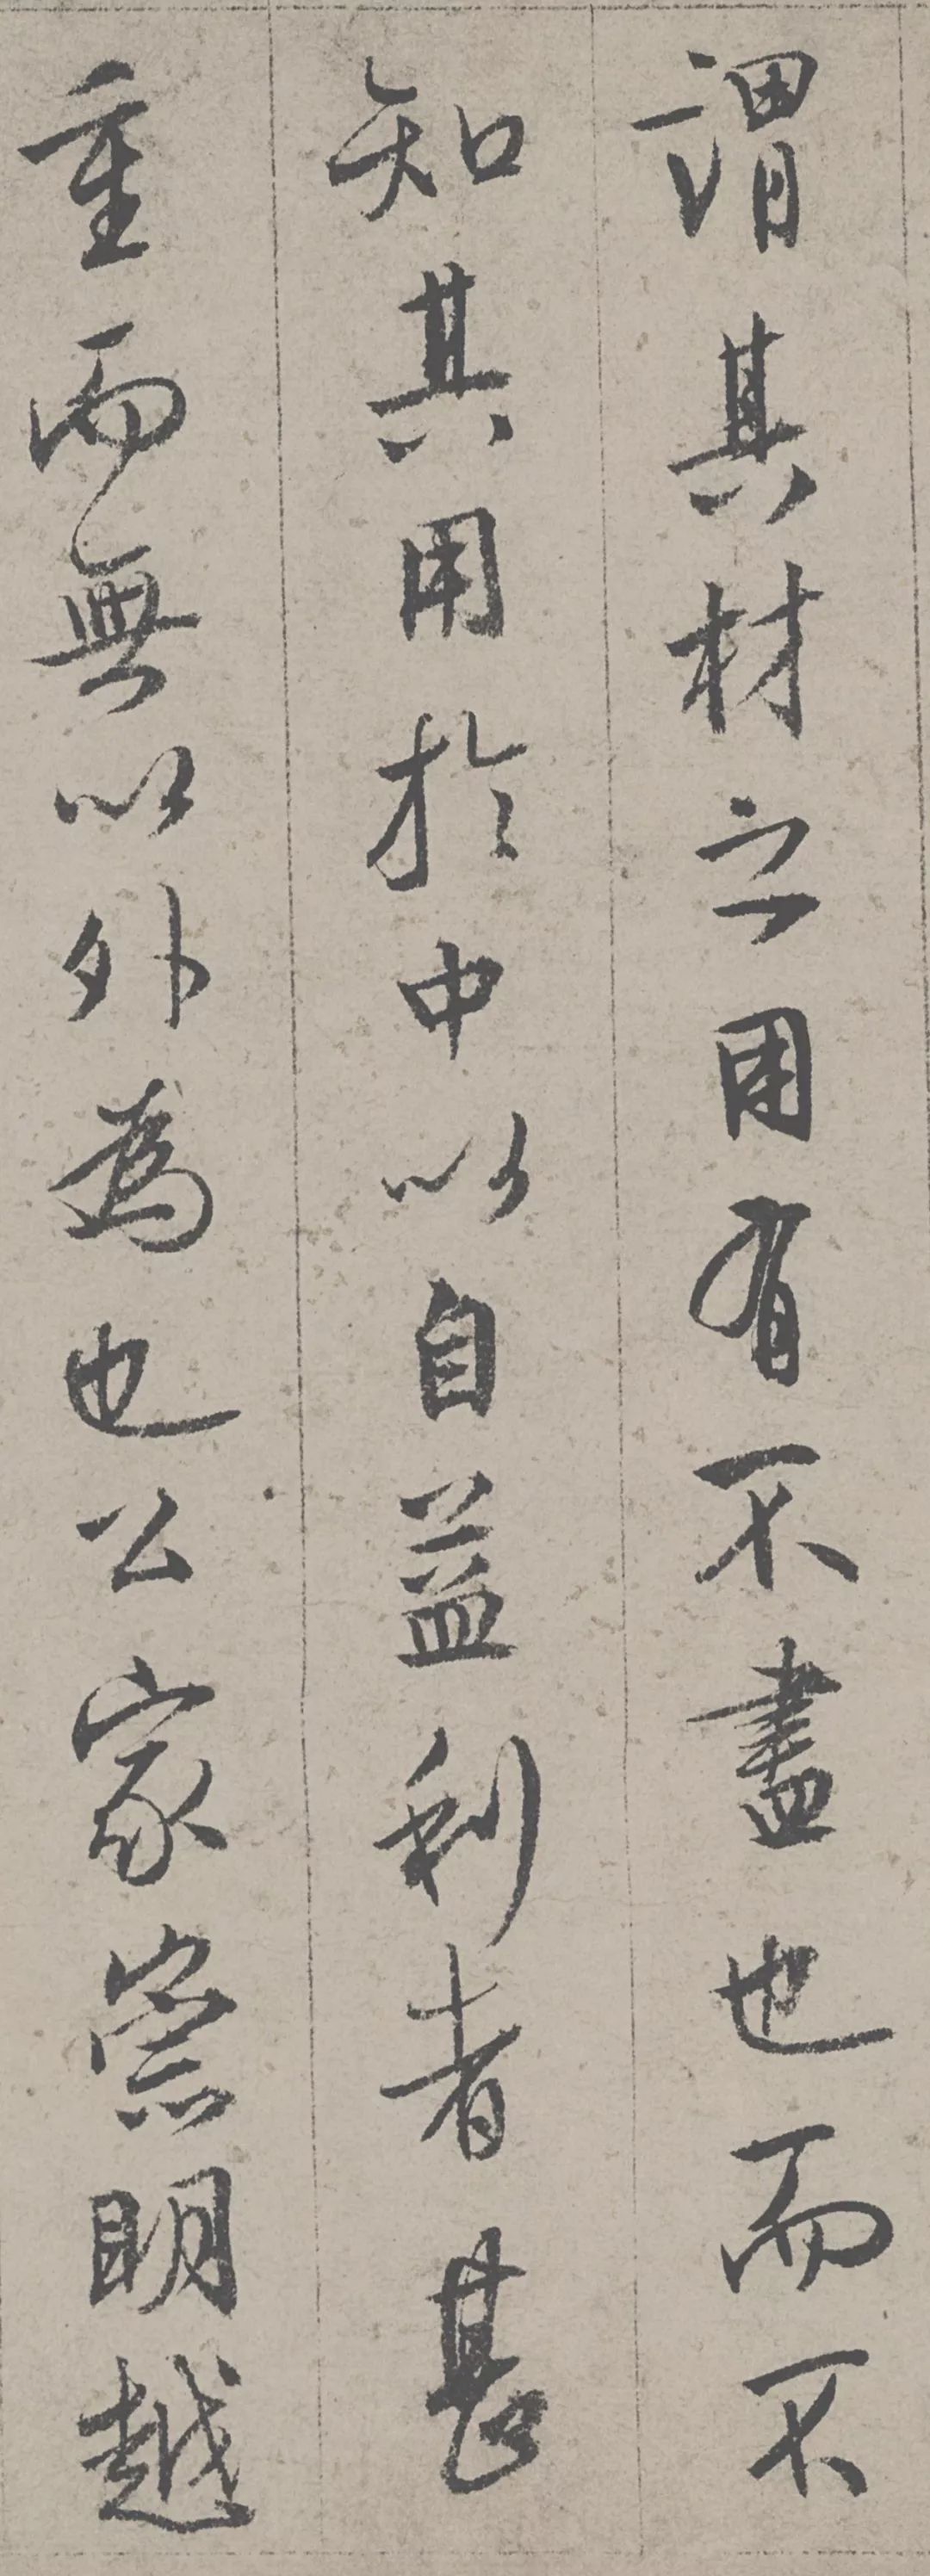 謂其材之用有不盡也而不
知其用於中以自益利者甚
重而無以外為也公家崇明越